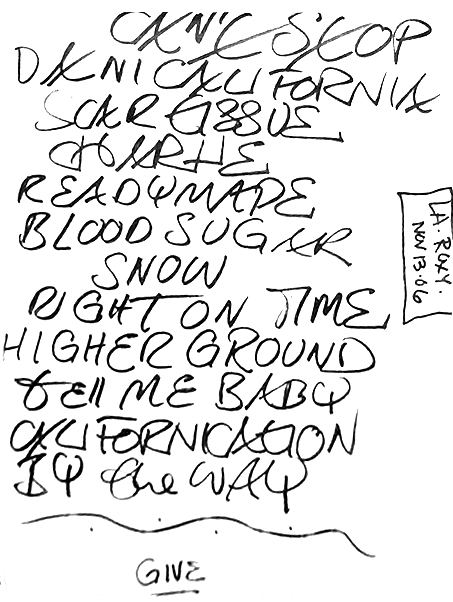 CAN'T STOP
DANI CALIFORNIA
SCAR TISSUE
CHARLIE
READYMADE
BLOOD SUGAR
SNOW
RIGHT ON TIME
HIGHER GROUND
tEll ME BABY
CALIFORNICATION
BY the WAY
GIVE
L.A. ROXY.
NOV 13.06